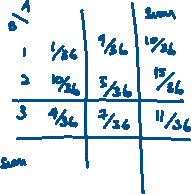 A Sum
B
1 1/36 9/36 10/36
2 10/36 5/36 15/36
3 4/36 7/36 11/36
Sum